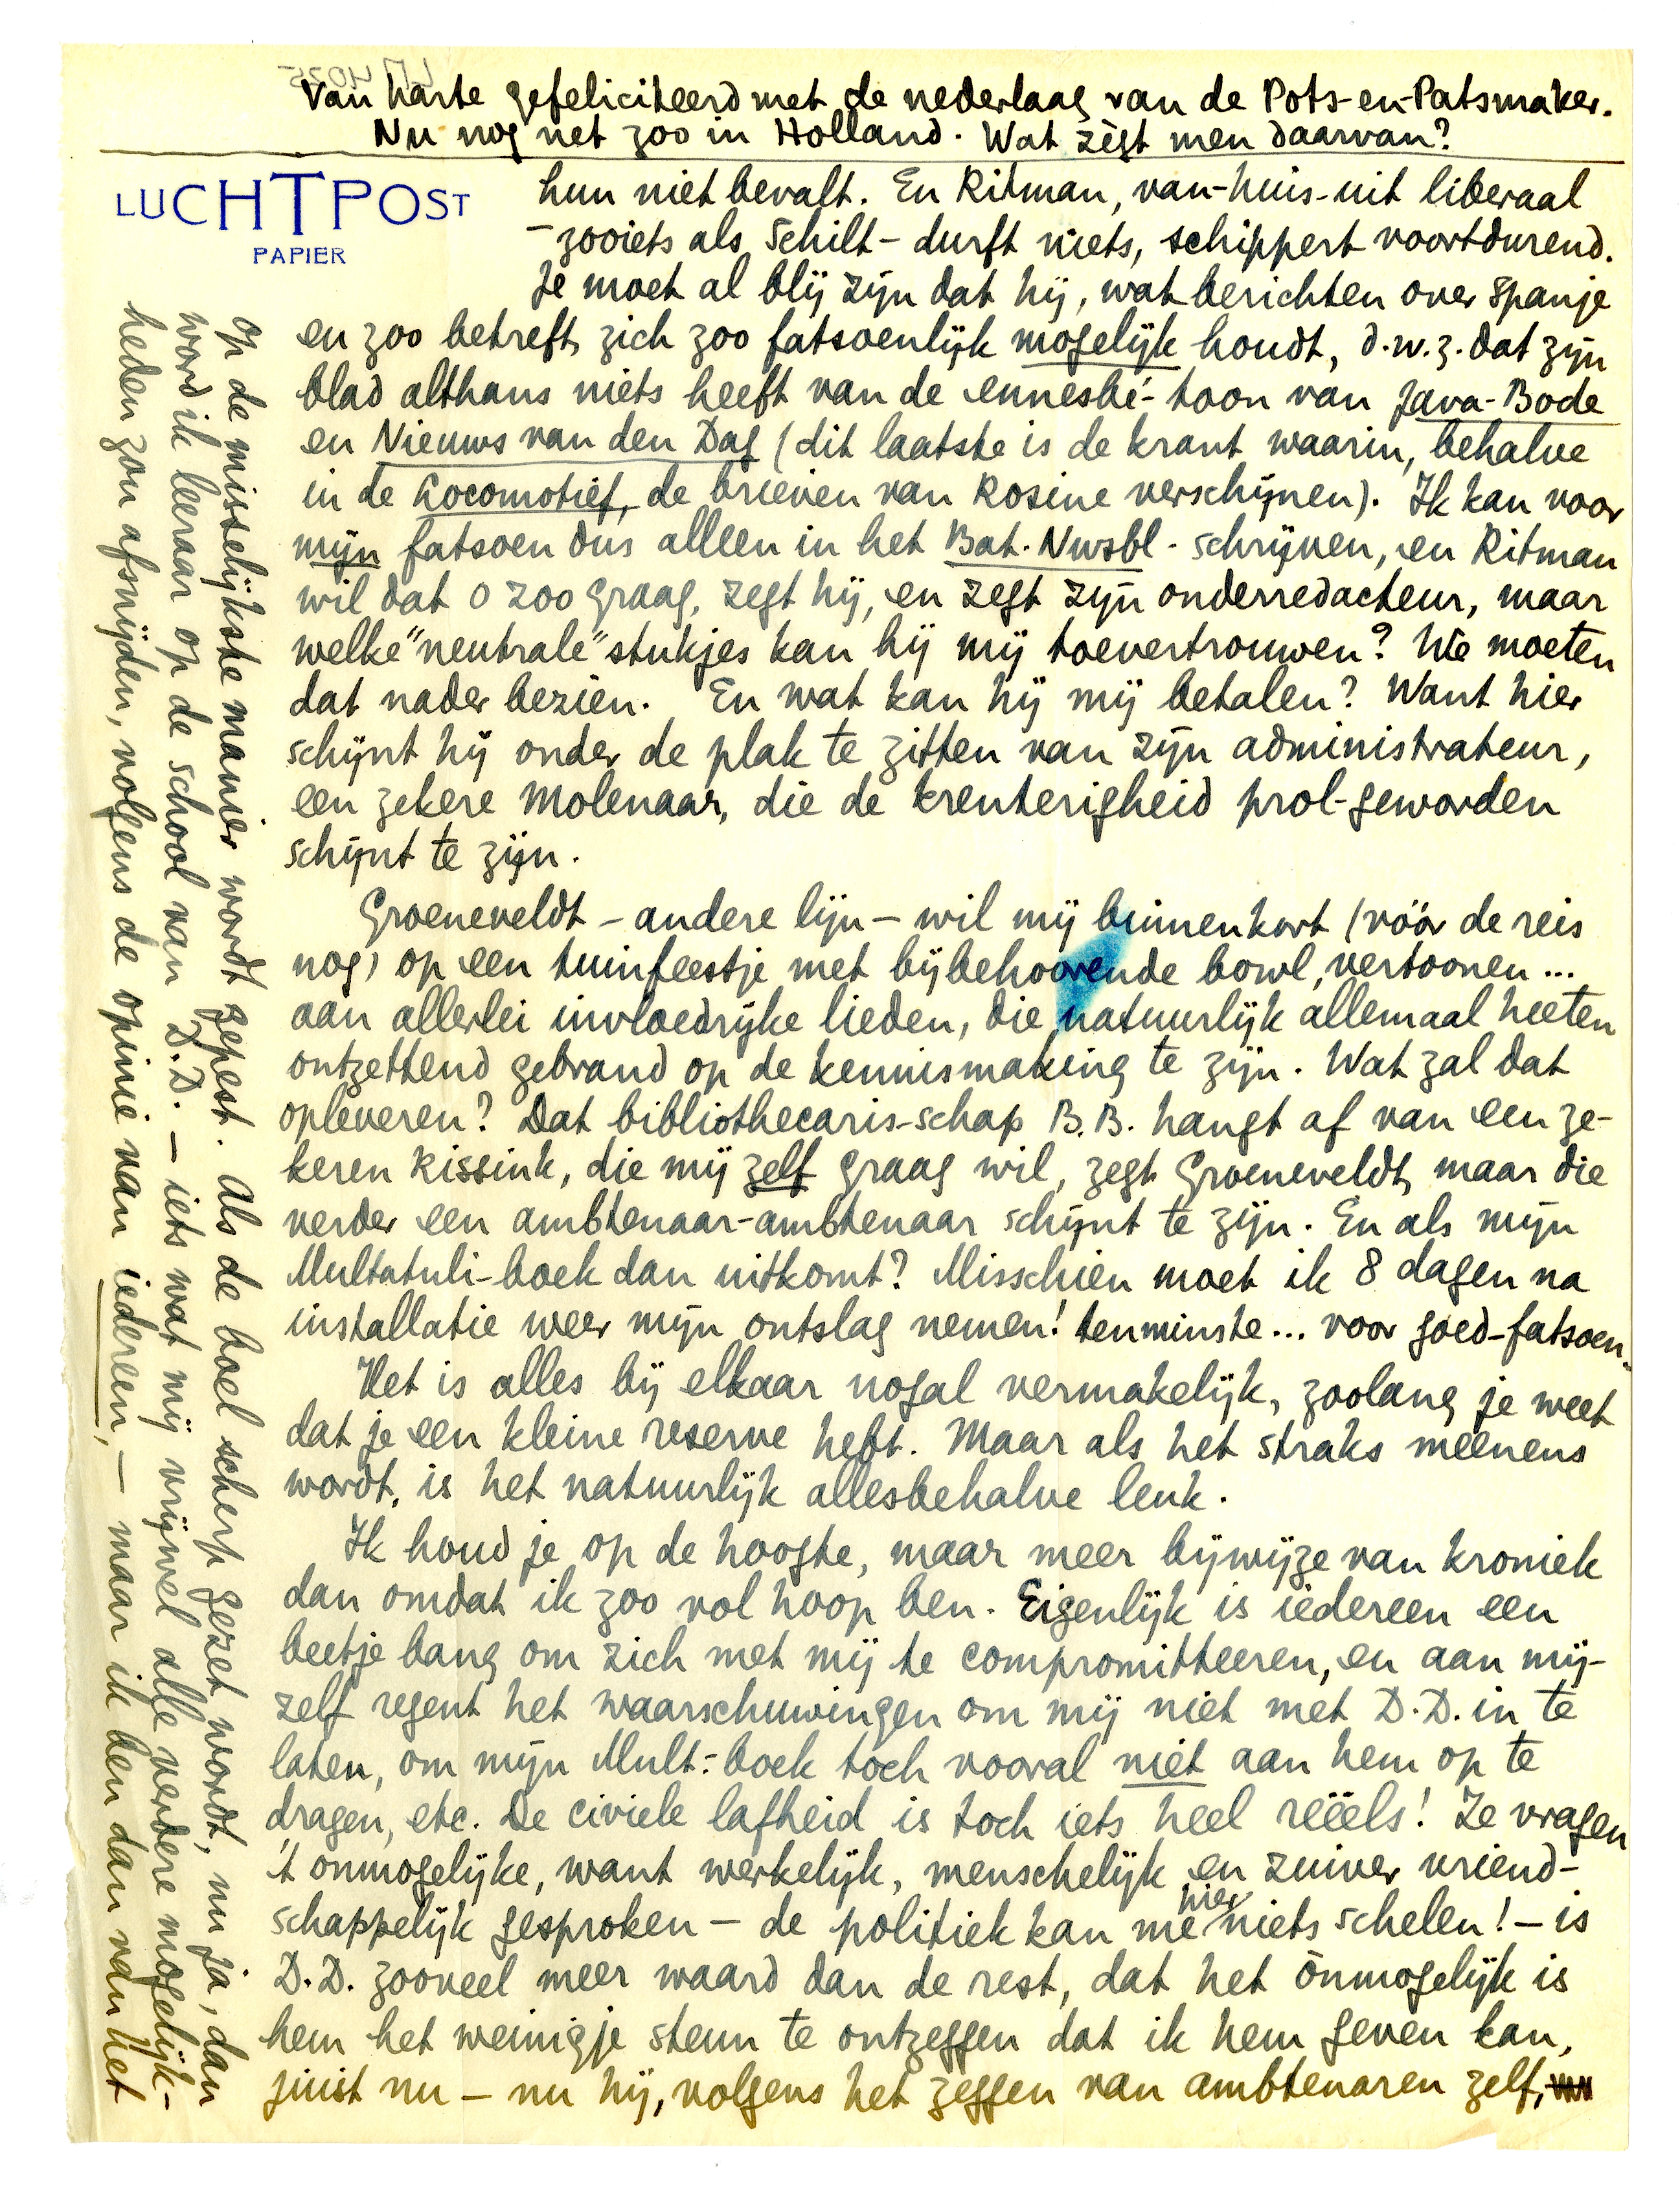 Van harte gefeliciteerd met de nederlaag van de Pots-en-Patsmaker.
Nu nog net zoo in Holland. Wat zègt men daarvan?
LUCHTPOST
PAPIER
hun niet bevalt. En Ritman, van-huis-uit liberaal
– zooiets als Schilt – durft niets, schippert voortdurend.
Je moet al blij zijn dat hij, wat berichten over Spanje
en zoo betreft, zich zoo fatsoenlijk mogelijk houdt, d.w.z. dat zijn
blad althans niets heeft van de ennesbé-toon van Java-Bode
en Nieuws van den Dag (dit laatste is de krant waarin, behalve
in de Locomotief, de brieven van Rosine verschijnen). Ik kan voor
mijn fatsoen dus alleen in het Bat. Nwsbl. schrijven, en Ritman
wil dat o zoo graag, zegt hij, en zegt zijn onderredacteur, maar
welke "neutrale" stukjes kan hij mij toevertrouwen? We moeten
dat nader bezien. En wat kan hij mij betalen? Want hier
schijnt hij onder de plak te zitten van zijn administrateur,
een zekere Molenaar, die de krenterigheid prol-geworden
schijnt te zijn.
Groeneveldt – andere lijn – wil mij binnenkort (vóór de reis
nog) op een tuinfeestje met bijbehoorende bowl, vertoonen...
aan allerlei invloedrijke lieden, die natuurlijk allemaal heeten
ontzettend gebrand op de kennismaking te zijn. Wat zal dat
opleveren? Dat bibliothecaris-schap B.B. hangt af van een ze-
keren Kissink, die mij zelf graag wil, zegt Groeneveldt, maar die
verder een ambtenaar-ambtenaar schijnt te zijn. En als mijn
Multatuli-boek dan uitkomt? Misschien moet ik 8 dagen na
installatie weer mijn ontslag nemen! tenminste... voor goed-fatsoen.
Het is alles bij elkaar nogal vermakelijk, zoolang je weet
dat je een kleine reserve hebt. Maar als het straks meenens
wordt, is het natuurlijk allesbehalve leuk.
Ik houd je op de hoogte, maar meer bijwijze van kroniek
dan omdat ik zoo vol hoop ben. Eigenlijk is iedereen een
beetje bang om zich met mij te compromitteeren, en aan mij-
zelf regent het waarschuwingen om mij niet met D.D. in te
laten, om mijn Mult.-boek toch vooral niet aan hem op te
dragen, etc. De civiele lafheid is toch iets heel reëels! Ze vragen
't onmogelijke, want werkelijk, menschelijk en zuiver vriend-
schappelijk gesproken – de politiek kan me hier niets schelen! – is
D.D. zooveel meer waard dan de rest, dat het ònmogelijk is
hem het weinigje steun te ontzeggen dat ik hem geven kan,
juist nu – nu hij, volgens het zeggen van ambtenaren zelf,
op de misselijkste manier wordt gepest. Als de boel scherp gezet wordt, nu ja, dan
word ik leeraar op de school van D.D. – iets wat mij vrijwel alle verdere mogelijk-
heden zou afsnijden, volgens de opinie van iedereen, – maar ik ben dan van het